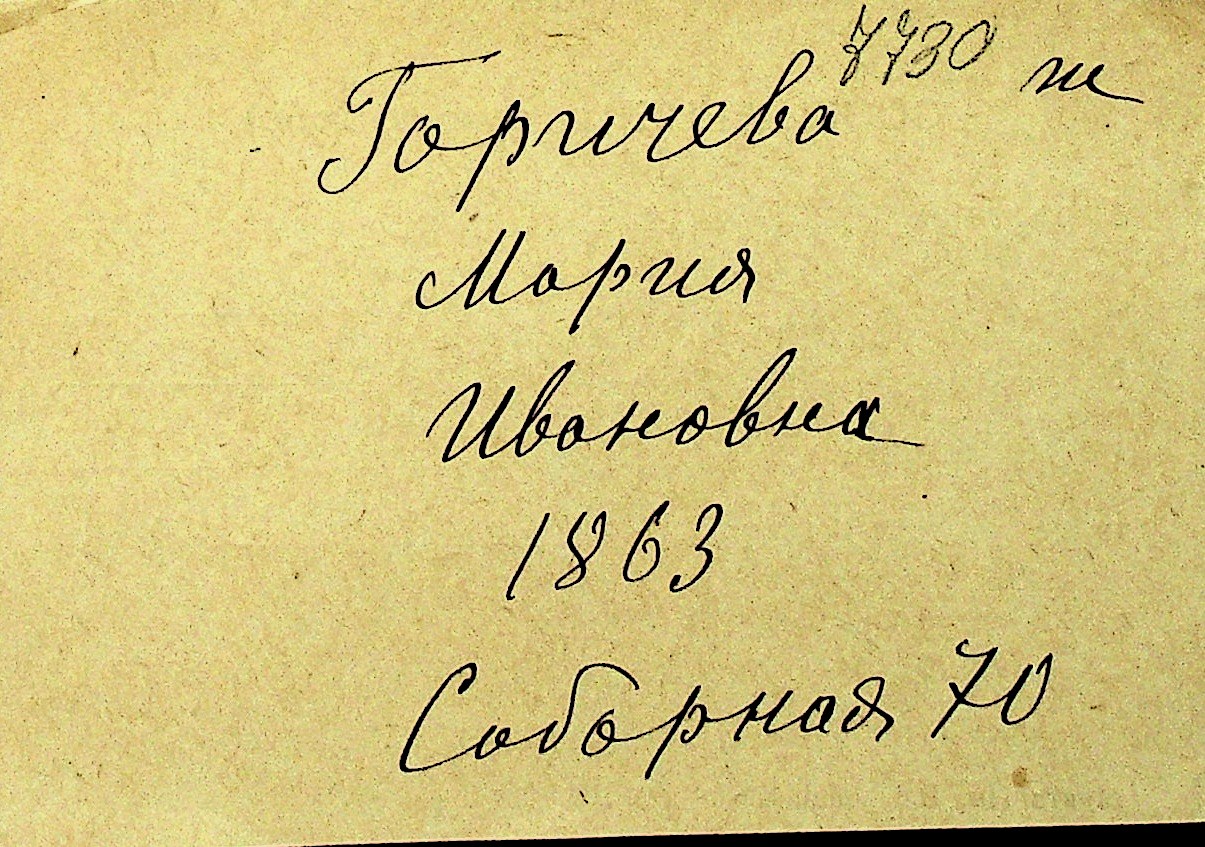 7730 ж
Горичева
Мария
Ивановна
1863
Соборная 70